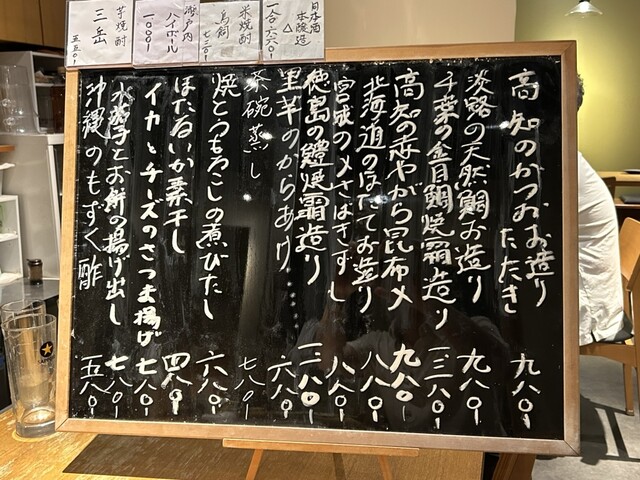 日本酒
本醸造
△
一合 六六〇ｌ
米焼酎
鳥飼
七二〇ｌ
瀬戸内
ハイボール
一〇〇〇ｌ
芋焼酎
三岳
五五〇ｌ
高知のかつお お造り
たたき 九八〇ｌ
淡路の天然鯛お造り 九八〇ｌ
千葉の金目鯛焼霜造り 一三八〇ｌ
高知の赤やがら昆布〆 九八〇ｌ
北海道のほたてお造り 八八〇ｌ
宮城の〆さばきずし 八八〇ｌ
徳島の鱧焼霜造り 一三八〇ｌ
里芋のからあげ 六八〇ｌ
茶碗蒸し 七八〇ｌ
焼とうもろこしの煮びたし 六八〇ｌ
ほたるいか素干し 四八〇ｌ
イカとチーズのさつま揚げ 七八〇ｌ
水茄子とお餅の揚げ出し 七八〇ｌ
沖縄のもずく酢 五八〇ｌ